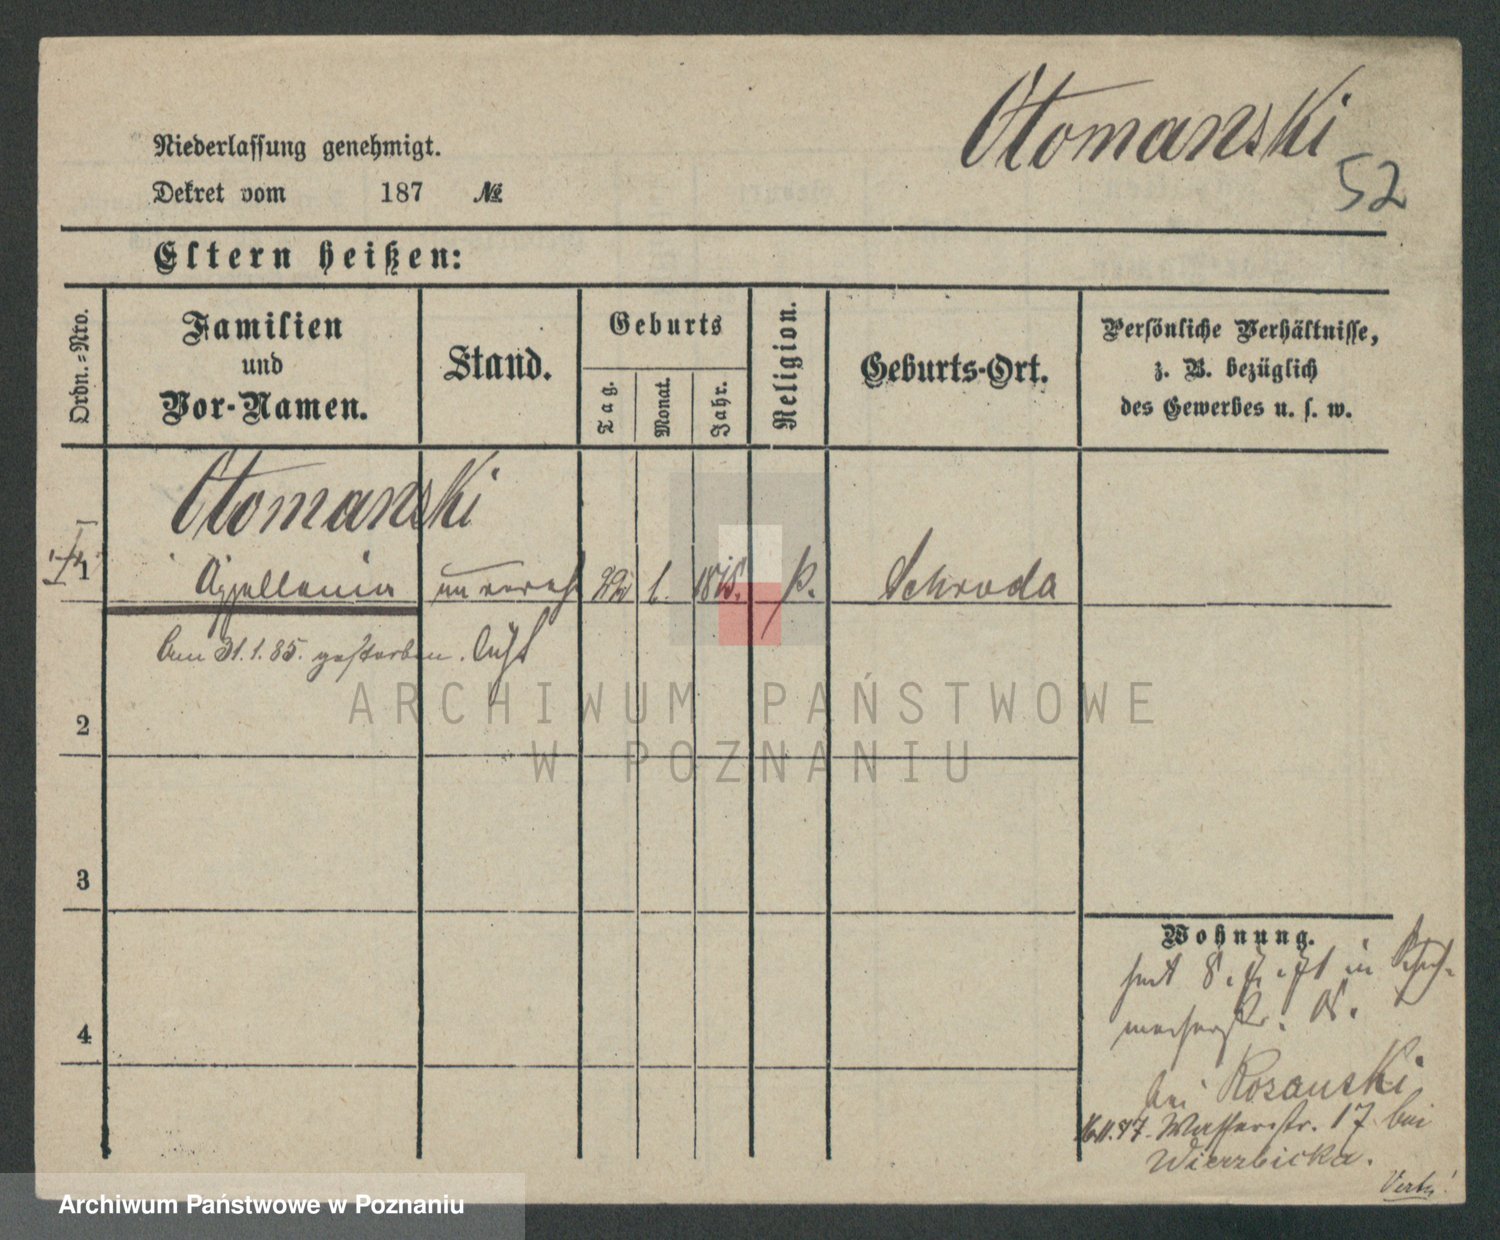 Otomanski
52
Niederlassung genehmigt.
Dekret vom 187 №
Eltern heißen:
Ordn.=Nro.
Familien
und
Vor-Namen.
Stand.
Geburts
Tag.
Monat.
Jahr.
Religion.
Geburts-Ort.
Persönliche Verhältnisse,
z. B. bezüglich
des Gewerbes u. s. w.
Otomanski
1 Appollonia unvereh 22 6. 18 Schroda
Am 31.1.85. gestorben.
2
3
4
Wohnung.
seit 8. in
bei Rosanski
Wasserstr. 17 bei
Wierzbicka.
ARCHIWUM PAŃSTWOWE
W POZNANIU
Archiwum Państwowe w Poznaniu